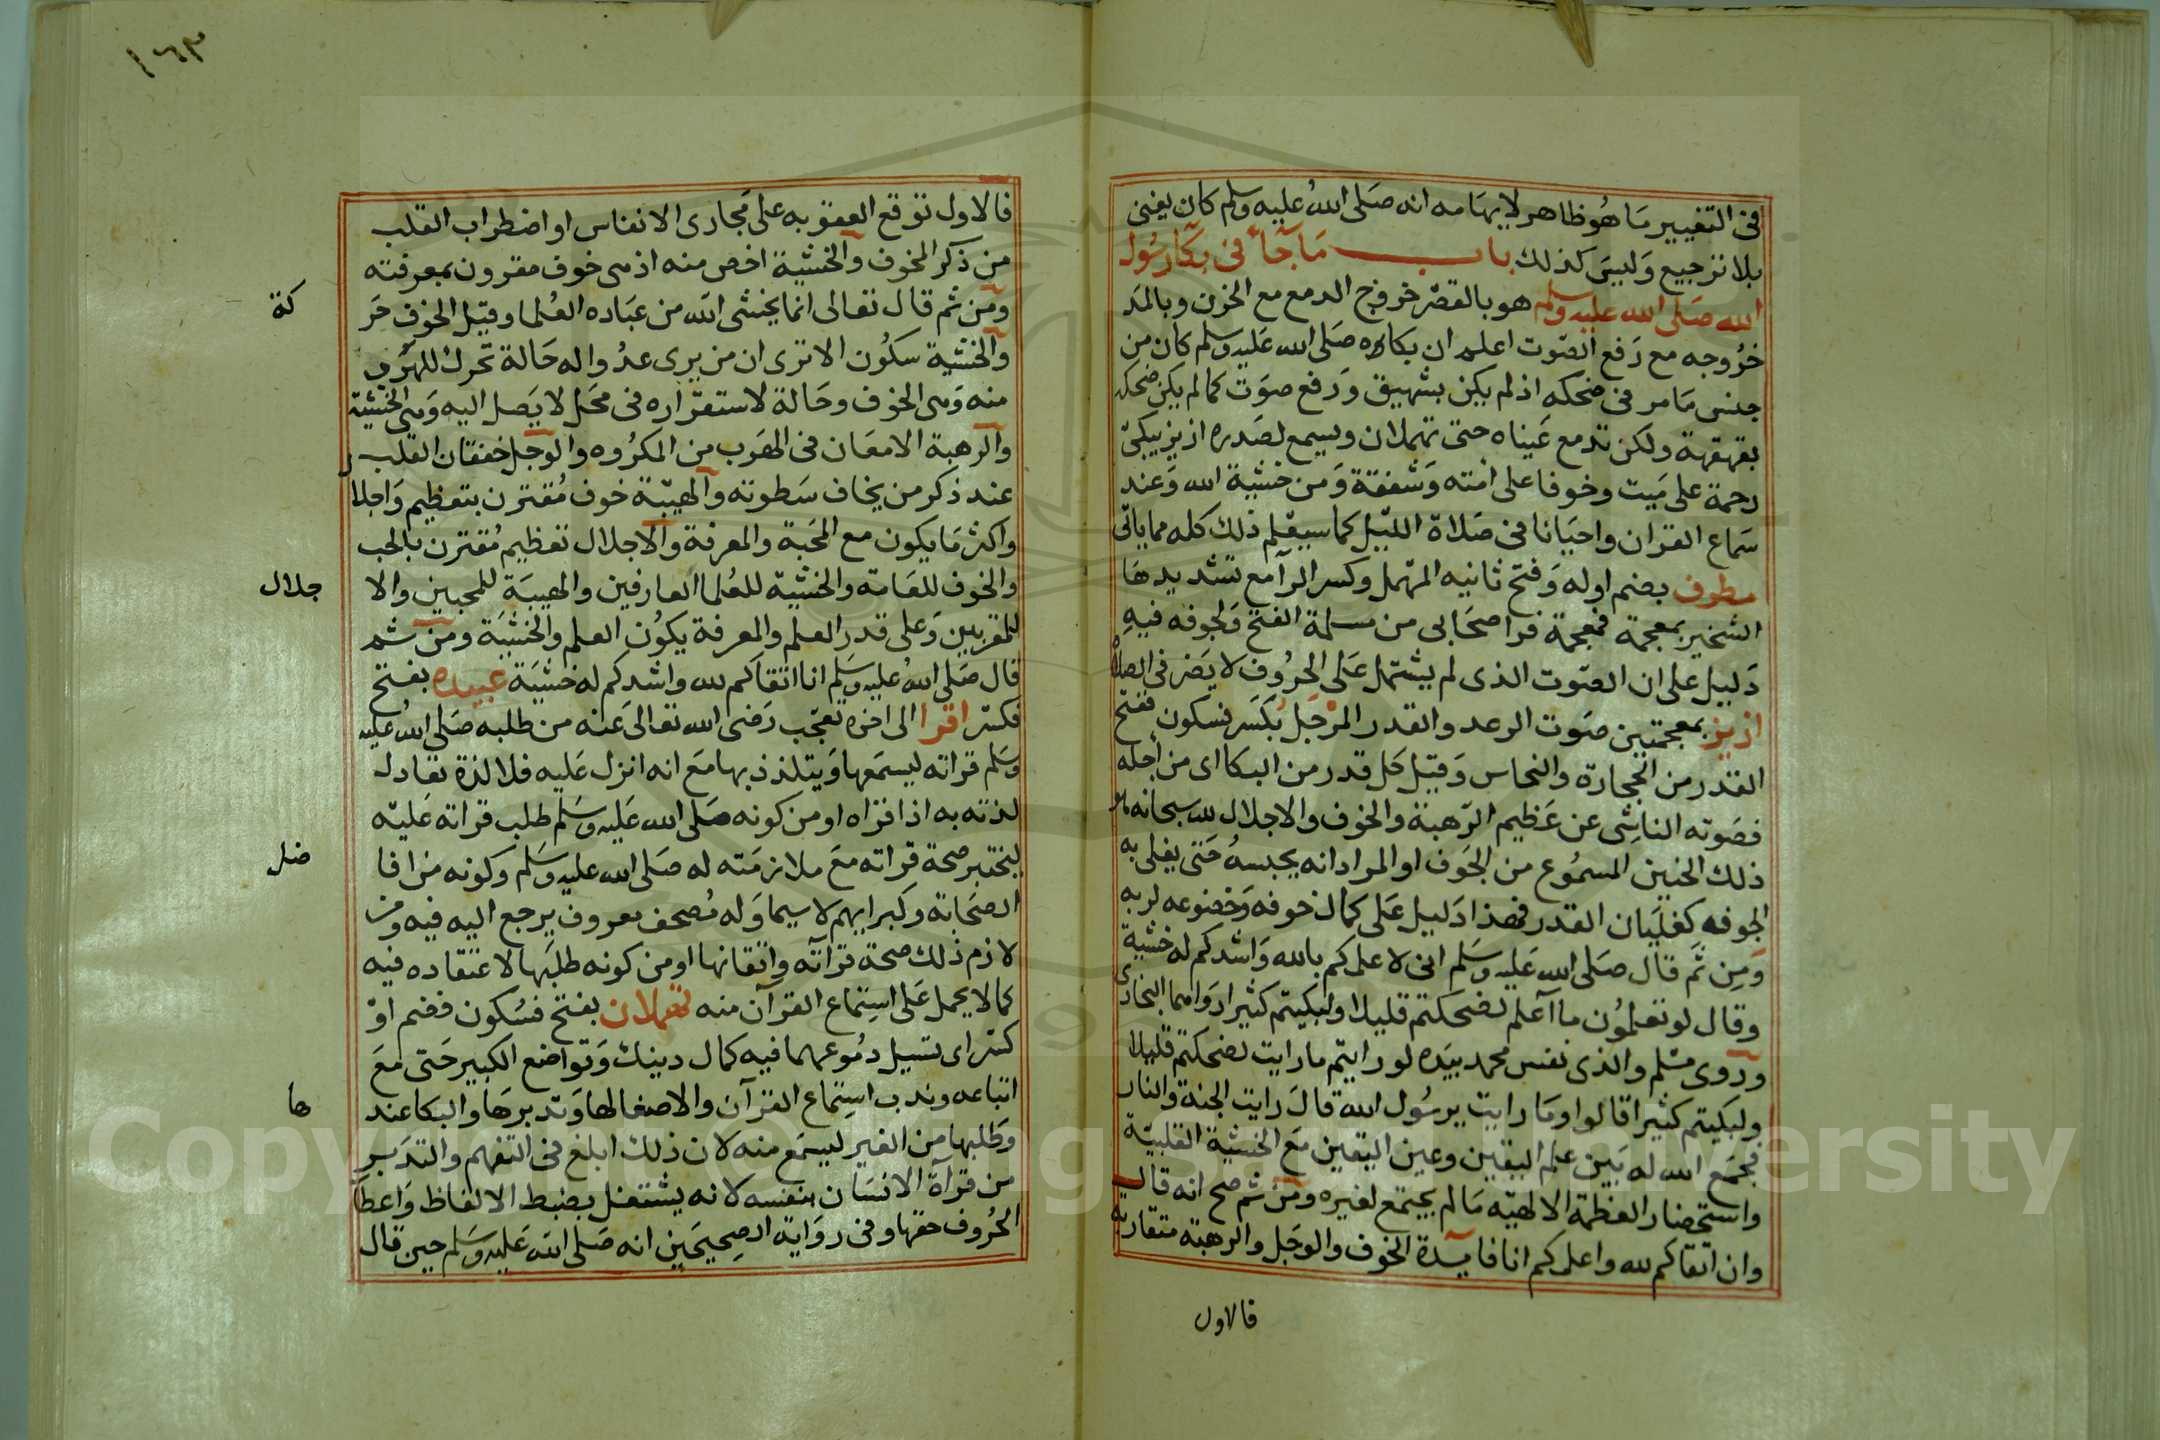 فى التغيير ما هو ظاهر لايهامه انه صلى الله عليه وسلم كان يغنى
بلا ترجيع وليس كذلك باب ما جاء فى بكا رسول
الله صلى الله عليه وسلم هو بالقصر خروج الدمع مع الحزن وبالمد
خروجه مع رفع الصوت اعلم ان بكاه صلى الله عليه وسلم كان من
جنس ما مر فى ضحكه اذ لم يكن بشهيق ورفع صوت كما لم يكن ضحكه
بقهقهة ولكن تدمع عيناه حتى تهملان ويسمع لصدره ازيز يبكى
رحمة على ميت وخوفا على امته وشفقة ومن خشية الله وعند
سماع القران واحيانا فى صلاة الليل كما سيعلم ذلك كله مما ياتى
مطرف بضم اوله وفتح ثانيه المهمل وكسر الرا مع تشديدها
الشخير بمعجمة فمعجمة فرا صحابى من مسلمة الفتح ولجوفه فيه
دليل على ان الصوت الذى لم يشتمل على الحروف لا يضر فى الصلاة
ازيز بمعجمتين صوت الرعد والقدر المرجل بكسر فسكون ففتح
القدر من الحجارة والنحاس وقيل كل قدر من البكا اى من اجله
فصوته الناشى عن عظيم الرهبة والخوف والاجلال لله سبحانه هو
ذلك الحنين المسموع من الجوف او المراد انه يحبسه حتى يغلى به
الجوفه كغليان القدر فهذا دليل على كمال خوفه وخضوعه لربه
ومن ثم قال صلى الله عليه وسلم انى لا علمكم بالله واشدكم له خشية
وقال لو تعلمون ما اعلم لضحكتم قليلا ولبكيتم كثيرا رواهما البخارى
وروى مسلم والذى نفس محمد بيده لو رايتم ما رايت لضحكتم قليلا
ولبكيتم كثيرا قالوا وما رايت يرسول الله قال رايت الجنة والنار
فجمع الله له بين علم اليقين وعين اليقين مع الخشية القلبية
واستحضار العظمة الالهية ما لم يجتمع لغيره ومن ثم صح انه قال
وان اتقاكم لله واعلمكم انا فايدة الخوف والوجل والرهبة متقاربة
فالاول
١٦٣
فالاول توقع العقوبه على مجارى الانفاس او اضطراب القلب
من ذكر المخوف والخشية اخص منه اذ هى خوف مقرون بمعرفته
ومن ثم قال تعالى انما يخشى الله من عباده العلما وقيل الخوف حر
كة
والخشية سكون الا ترى ان من يرى عدوا له حالة تحرك للهرب
منه وهى الخوف وحالة لاستقراره فى محل لا يصل اليه وهى الخشية
والرهبة الامعان فى الهرب من المكروه والوجل خفقان القلب
عند ذكر من يخاف سطوته والهيبة خوف مقترن بتعظيم واجلال
واكثر ما يكون مع المحبة والمعرفة والاجلال تعظيم مقترن بالحب
والخوف للعامه والخشية للعلما العارفين والهيبة للمحبين والا
جلال
للمقربين وعلى قدر العلم والمعرفة يكون العلم والخشية ومن ثم
قال صلى الله عليه وسلم انا اتقاكم لله واشدكم له خشية عبيده بفتح
فكسر اقرا الى اخره تعجب رضى الله تعالى عنه من طلبه صلى الله عليه
وسلم قراته ليسمعها ويتلذذ بها مع انه انزل عليه فلا لذة تعادل
لذته به اذا قراه او من كونه صلى الله عليه وسلم طلب قراته عليه
ليختبر صحة قراته مع ملازمته له صلى الله عليه وسلم وكونه من افا
ضل
الصحابة وكبرايهم لا سيما وله مصحف معروف يرجع اليه فيه ومن
لازم ذلك صحة قراته واتقانها او من كونه طلبها لاعتقاده فيه
كما لا يحمل على استماع القرآن منه تهملان بفتح فسكون فضم او
كسر اى تسيل دموعهما فيه كمال دينك وتواضع الكبير حتى مع
اتباعه وندب استماع القرآن والاصغا لها وتدبرها والبكا عند
ها
وطلبها من الغير ليسمع منه لان ذلك ابلغ فى التفهم والتدبر
من قرآة الانسان بنفسه لانه يشتغل بضبط الالفاظ واعطا
الحروف حقها وفى رواية الصحيحين انه صلى الله عليه وسلم حين قال
Copyright © King Saud University